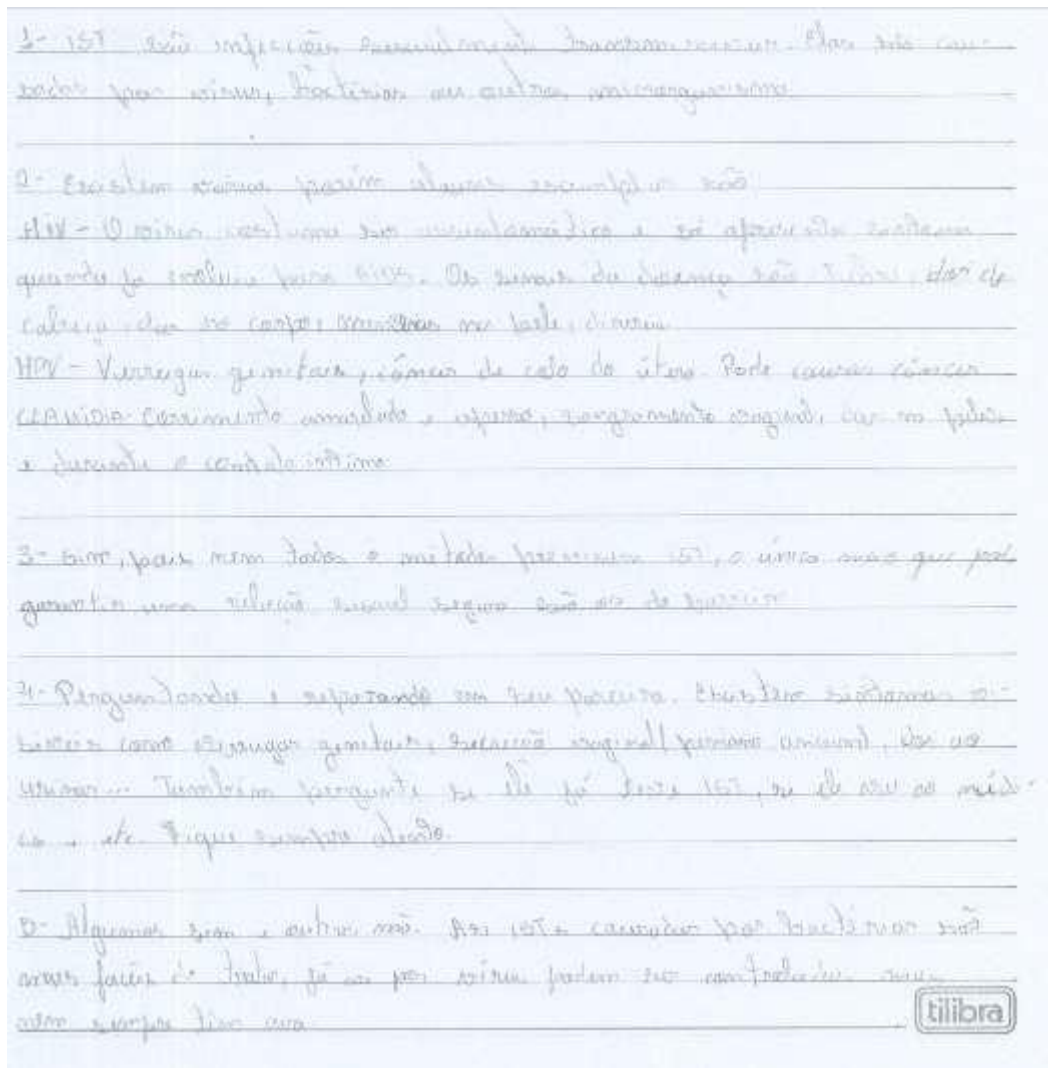 1- IST são infecções sexualmente transmissíveis. Elas são cau-
sadas por vírus, bactérias ou outros microrganismo
2- Existem várias porém alguns exemplos são
HIV - O vírus costuma ser assintomático e só apresenta sintomas
quando já evoluiu para AIDS. Os sinais da doença são febre, dor de
cabeça, dor no corpo, manchas na pele, diarreia
HPV - Verrugas genitais, câncer de colo do útero. Pode causar câncer
CLAMIDIA- Corrimento amarelado e espesso, sangramento vaginal, dor na pelve
e durante o contato intimo
3- Sim, pois nem todos o métodos previnem IST, o único que pode
garantir uma relação sexual segura são os de barreira
4- Perguntando e reparando em seu parceiro. Existem sintomas vi-
síveis como verrugas genitais, secreção vaginal/peniana anormal, dor ao
urinar... Também pergunte se ele já teve IST, se ele vai ao médi-
co, etc. Fique sempre atento.
5- Algumas sim e outras não. As ISTs causadas por bactérias são
mais fáceis de tratar, já as por vírus podem ser controladas mas
nem sempre têm cura
tilibra